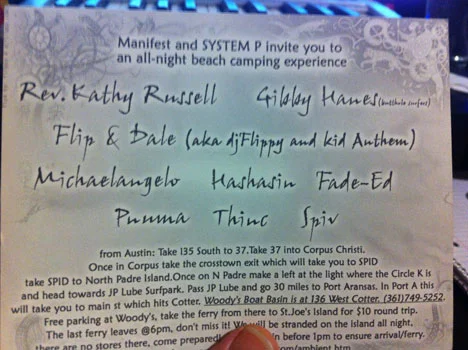 Manifest and SYSTEM P invite you to
an all-night beach camping experience
Rev. Kathy Russell Gibby Hanes (butthole surfers)
Flip & Dale (aka djFlippy and kid Anthem)
Michaelangelo Hashasin Fade-Ed
Punma Thinc Spiv
from Austin: Take I35 South to 37.Take 37 into Corpus Christi.
Once in Corpus take the crosstown exit which will take you to SPID
take SPID to North Padre Island.Once on N Padre make a left at the light where the Circle K is
and head towards JP Lube Surfpark. Pass JP Lube and go 30 miles to Port Aransas. In Port A this
will take you to main st which hits Cotter. Woody's Boat Basin is at 136 West Cotter. (361)749-5252.
Free parking at Woody's, take the ferry from there to St.Joe's Island for $10 round trip.
The last ferry leaves @6pm, don't miss it! We will be stranded on the island all night.
there are no stores there, come prepared in before 1pm to ensure arrival/ferry.
com/ambient.htm